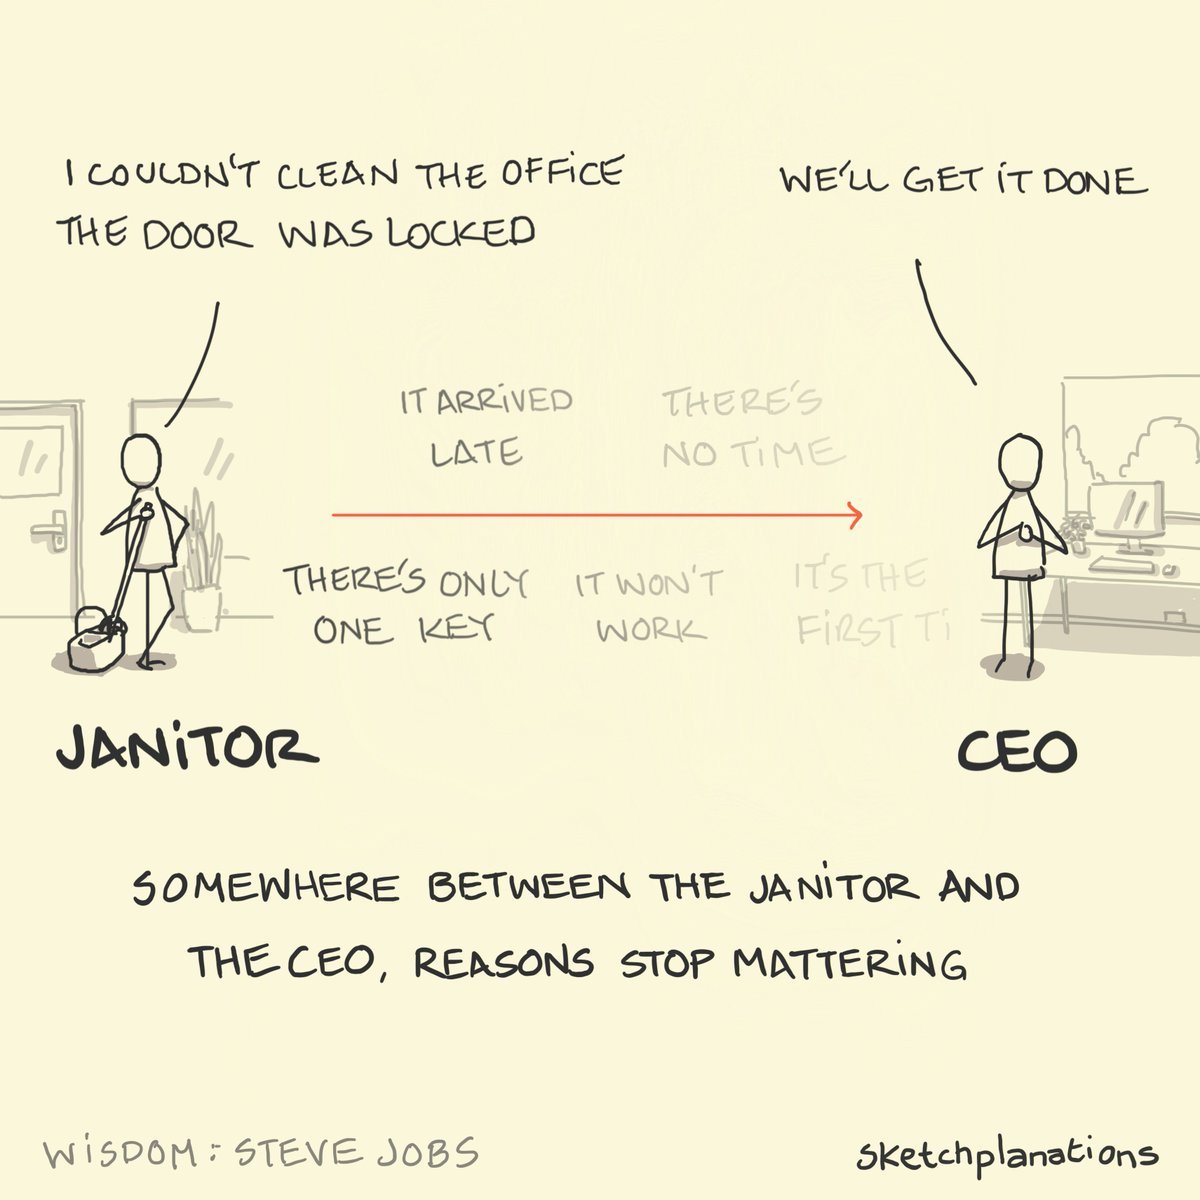 I COULDN'T CLEAN THE OFFICE
THE DOOR WAS LOCKED
WE'LL GET IT DONE
IT ARRIVED
LATE
THERE'S
NO TIME
THERE'S ONLY
ONE KEY
IT WON'T
WORK
IT'S THE
FIRST TI
JANITOR
CEO
SOMEWHERE BETWEEN THE JANITOR AND
THE CEO, REASONS STOP MATTERING
WISDOM: STEVE JOBS
sketchplanations